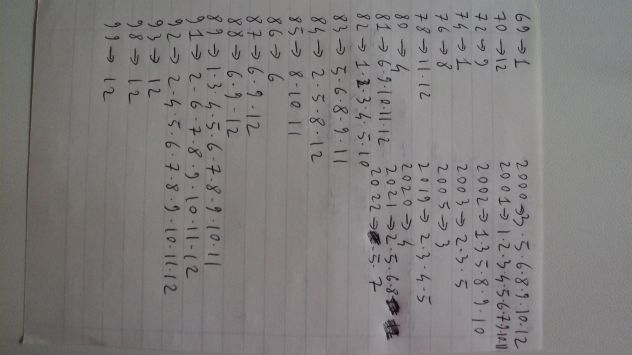 69→1
70→12
72→9
74→1
76→8
78→11·12
80→4
81→6·9·10·11·12
82→1·2·3·4·5·10
83→5·6·8·9·11
84→2·5·8·12
85→8·10·11
86→6
87→6·9·12
88→6·9·12
89→1·3·4·5·6·7·8·9·10·11
91→2·6·7·8·9·10·11·12
92→2·4·5·6·7·8·9·10·11·12
93→12
98→12
99→12
2000→3·5·6·8·9·10·12
2001→1·2·3·4·5·6·7·9·10·11
2002→1·3·5·8·9·10
2003→2·3·5
2005→3
2019→2·3·4·5
2020→4
2021→2·5·6·8
2022→5·7